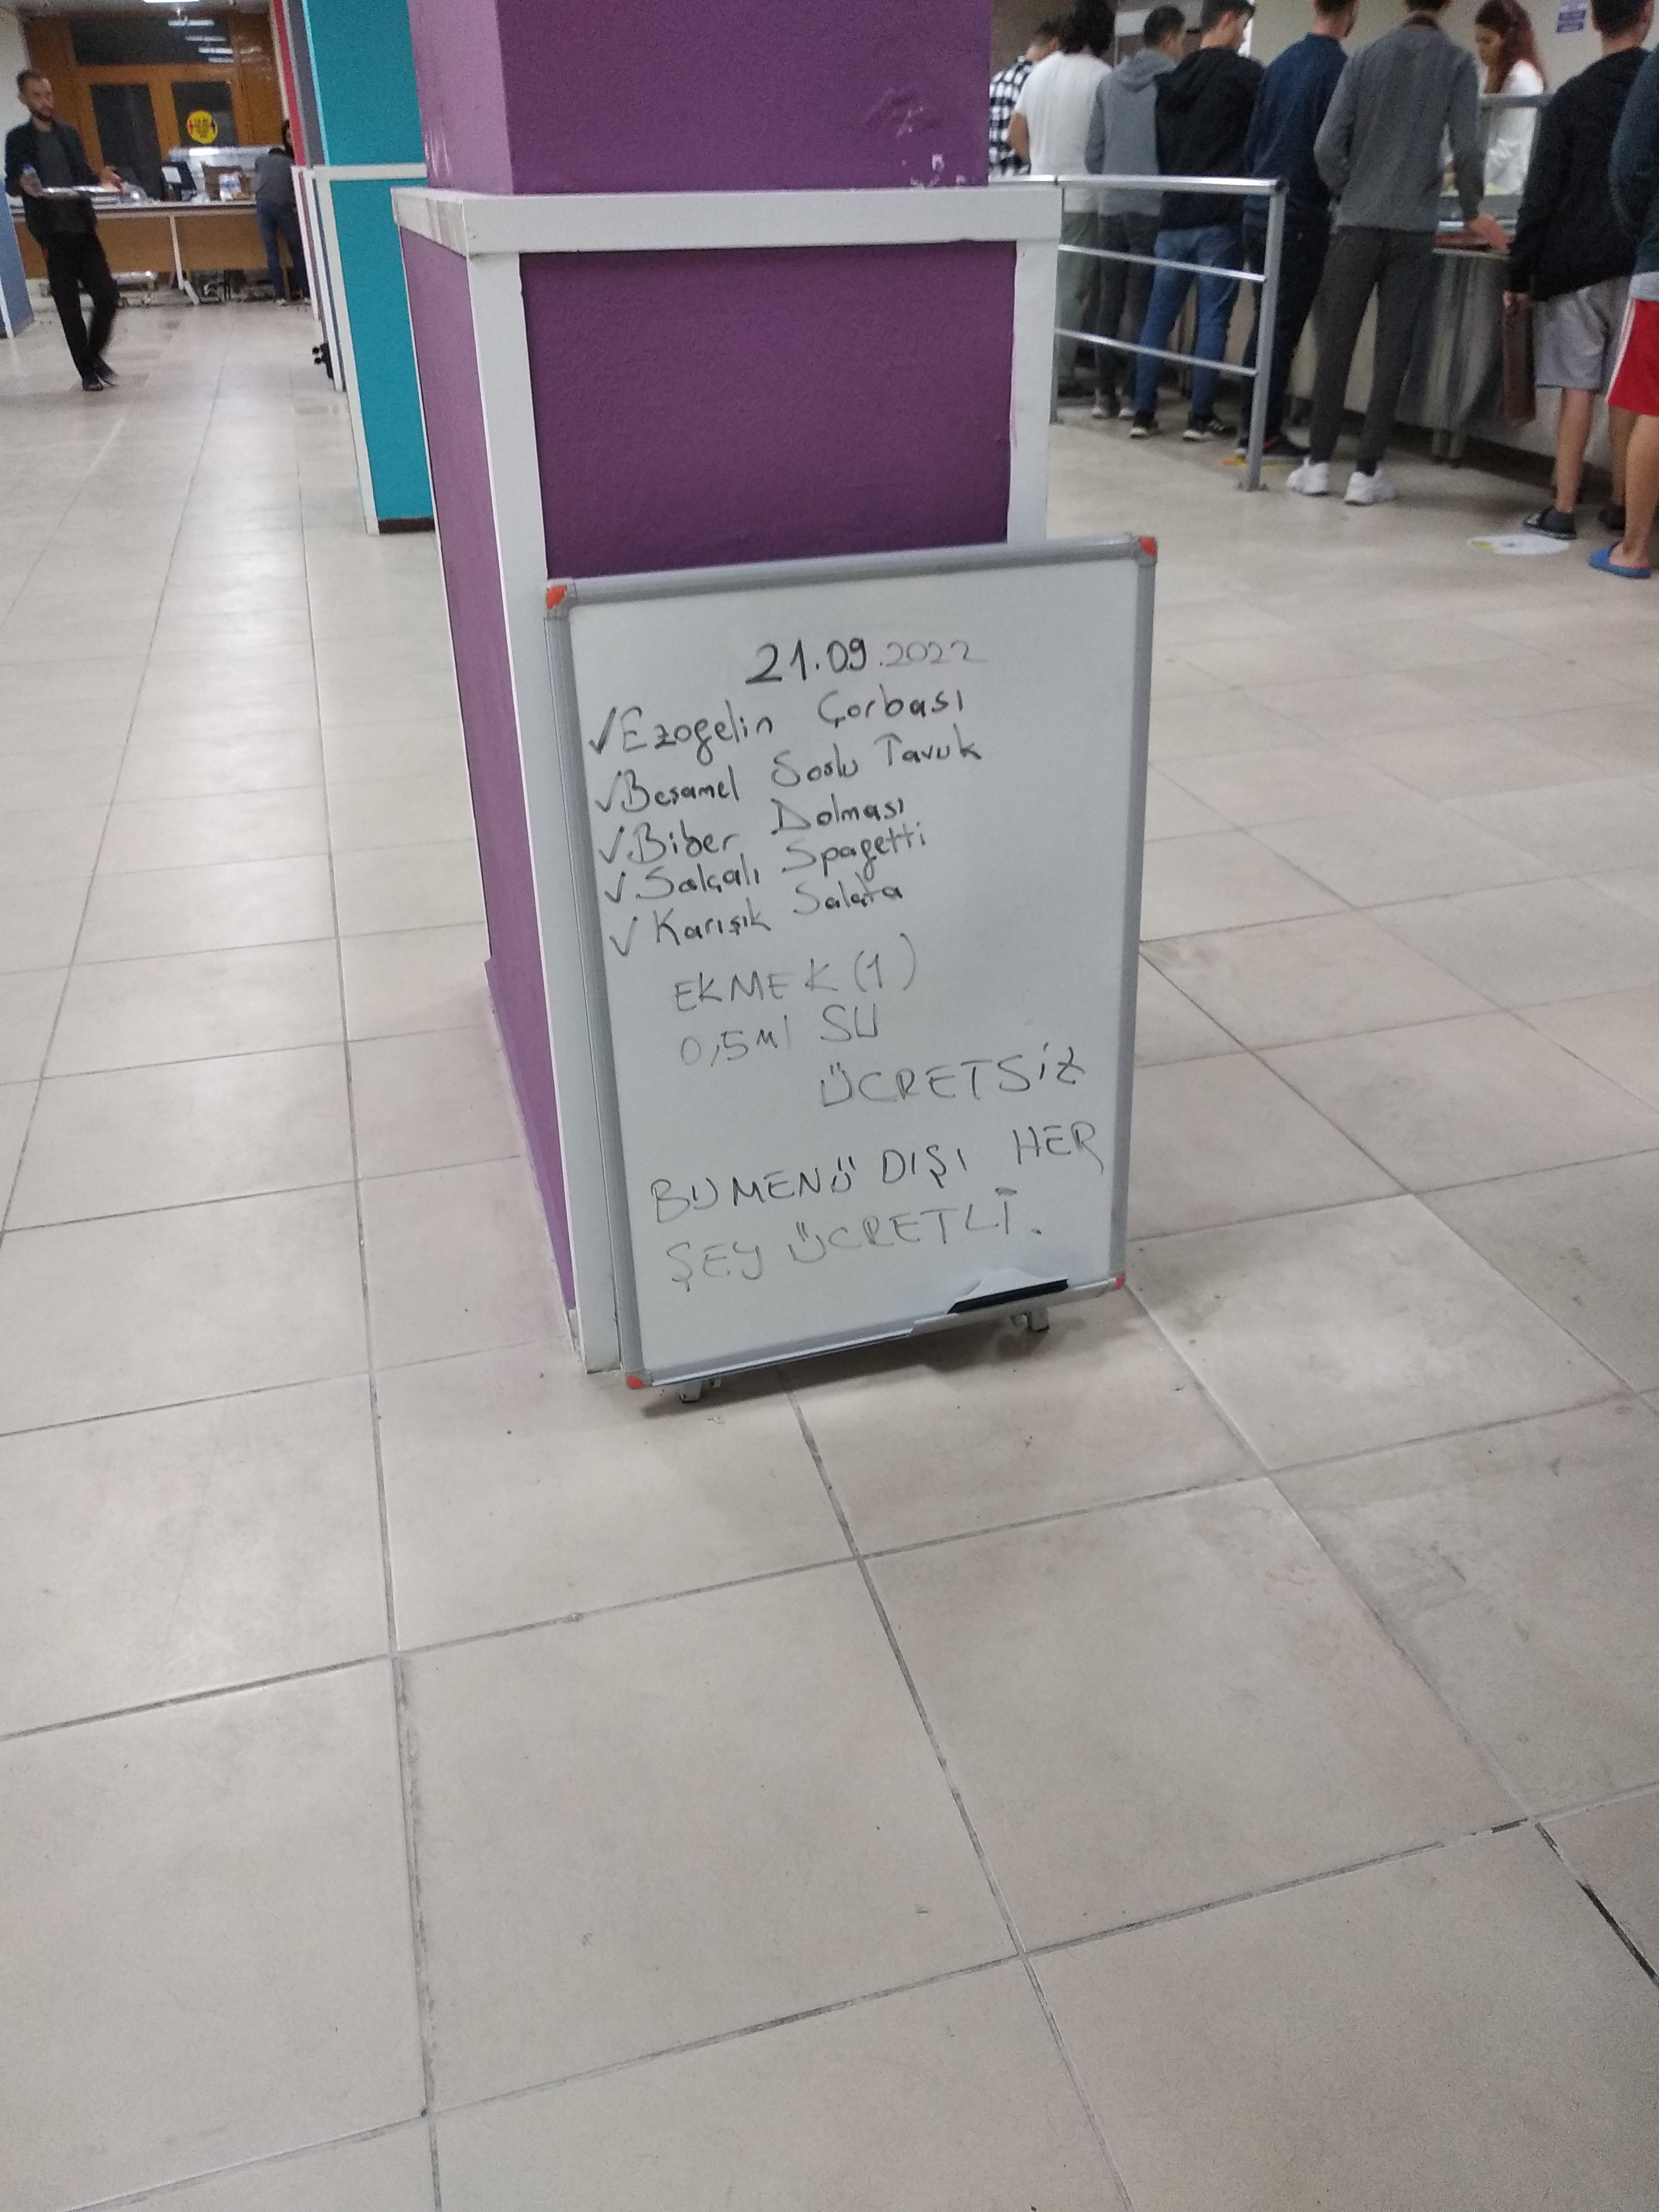 21.09.2022
✓Ezogelin Çorbası
✓Beşamel Soslu Tavuk
✓Biber Dolması
✓Salçalı Spagetti
✓Karışık Salata
EKMEK (1)
0,5ml SU
ÜCRETSİZ
BU MENÜ DIŞI HER
ŞEY ÜCRETLİ.